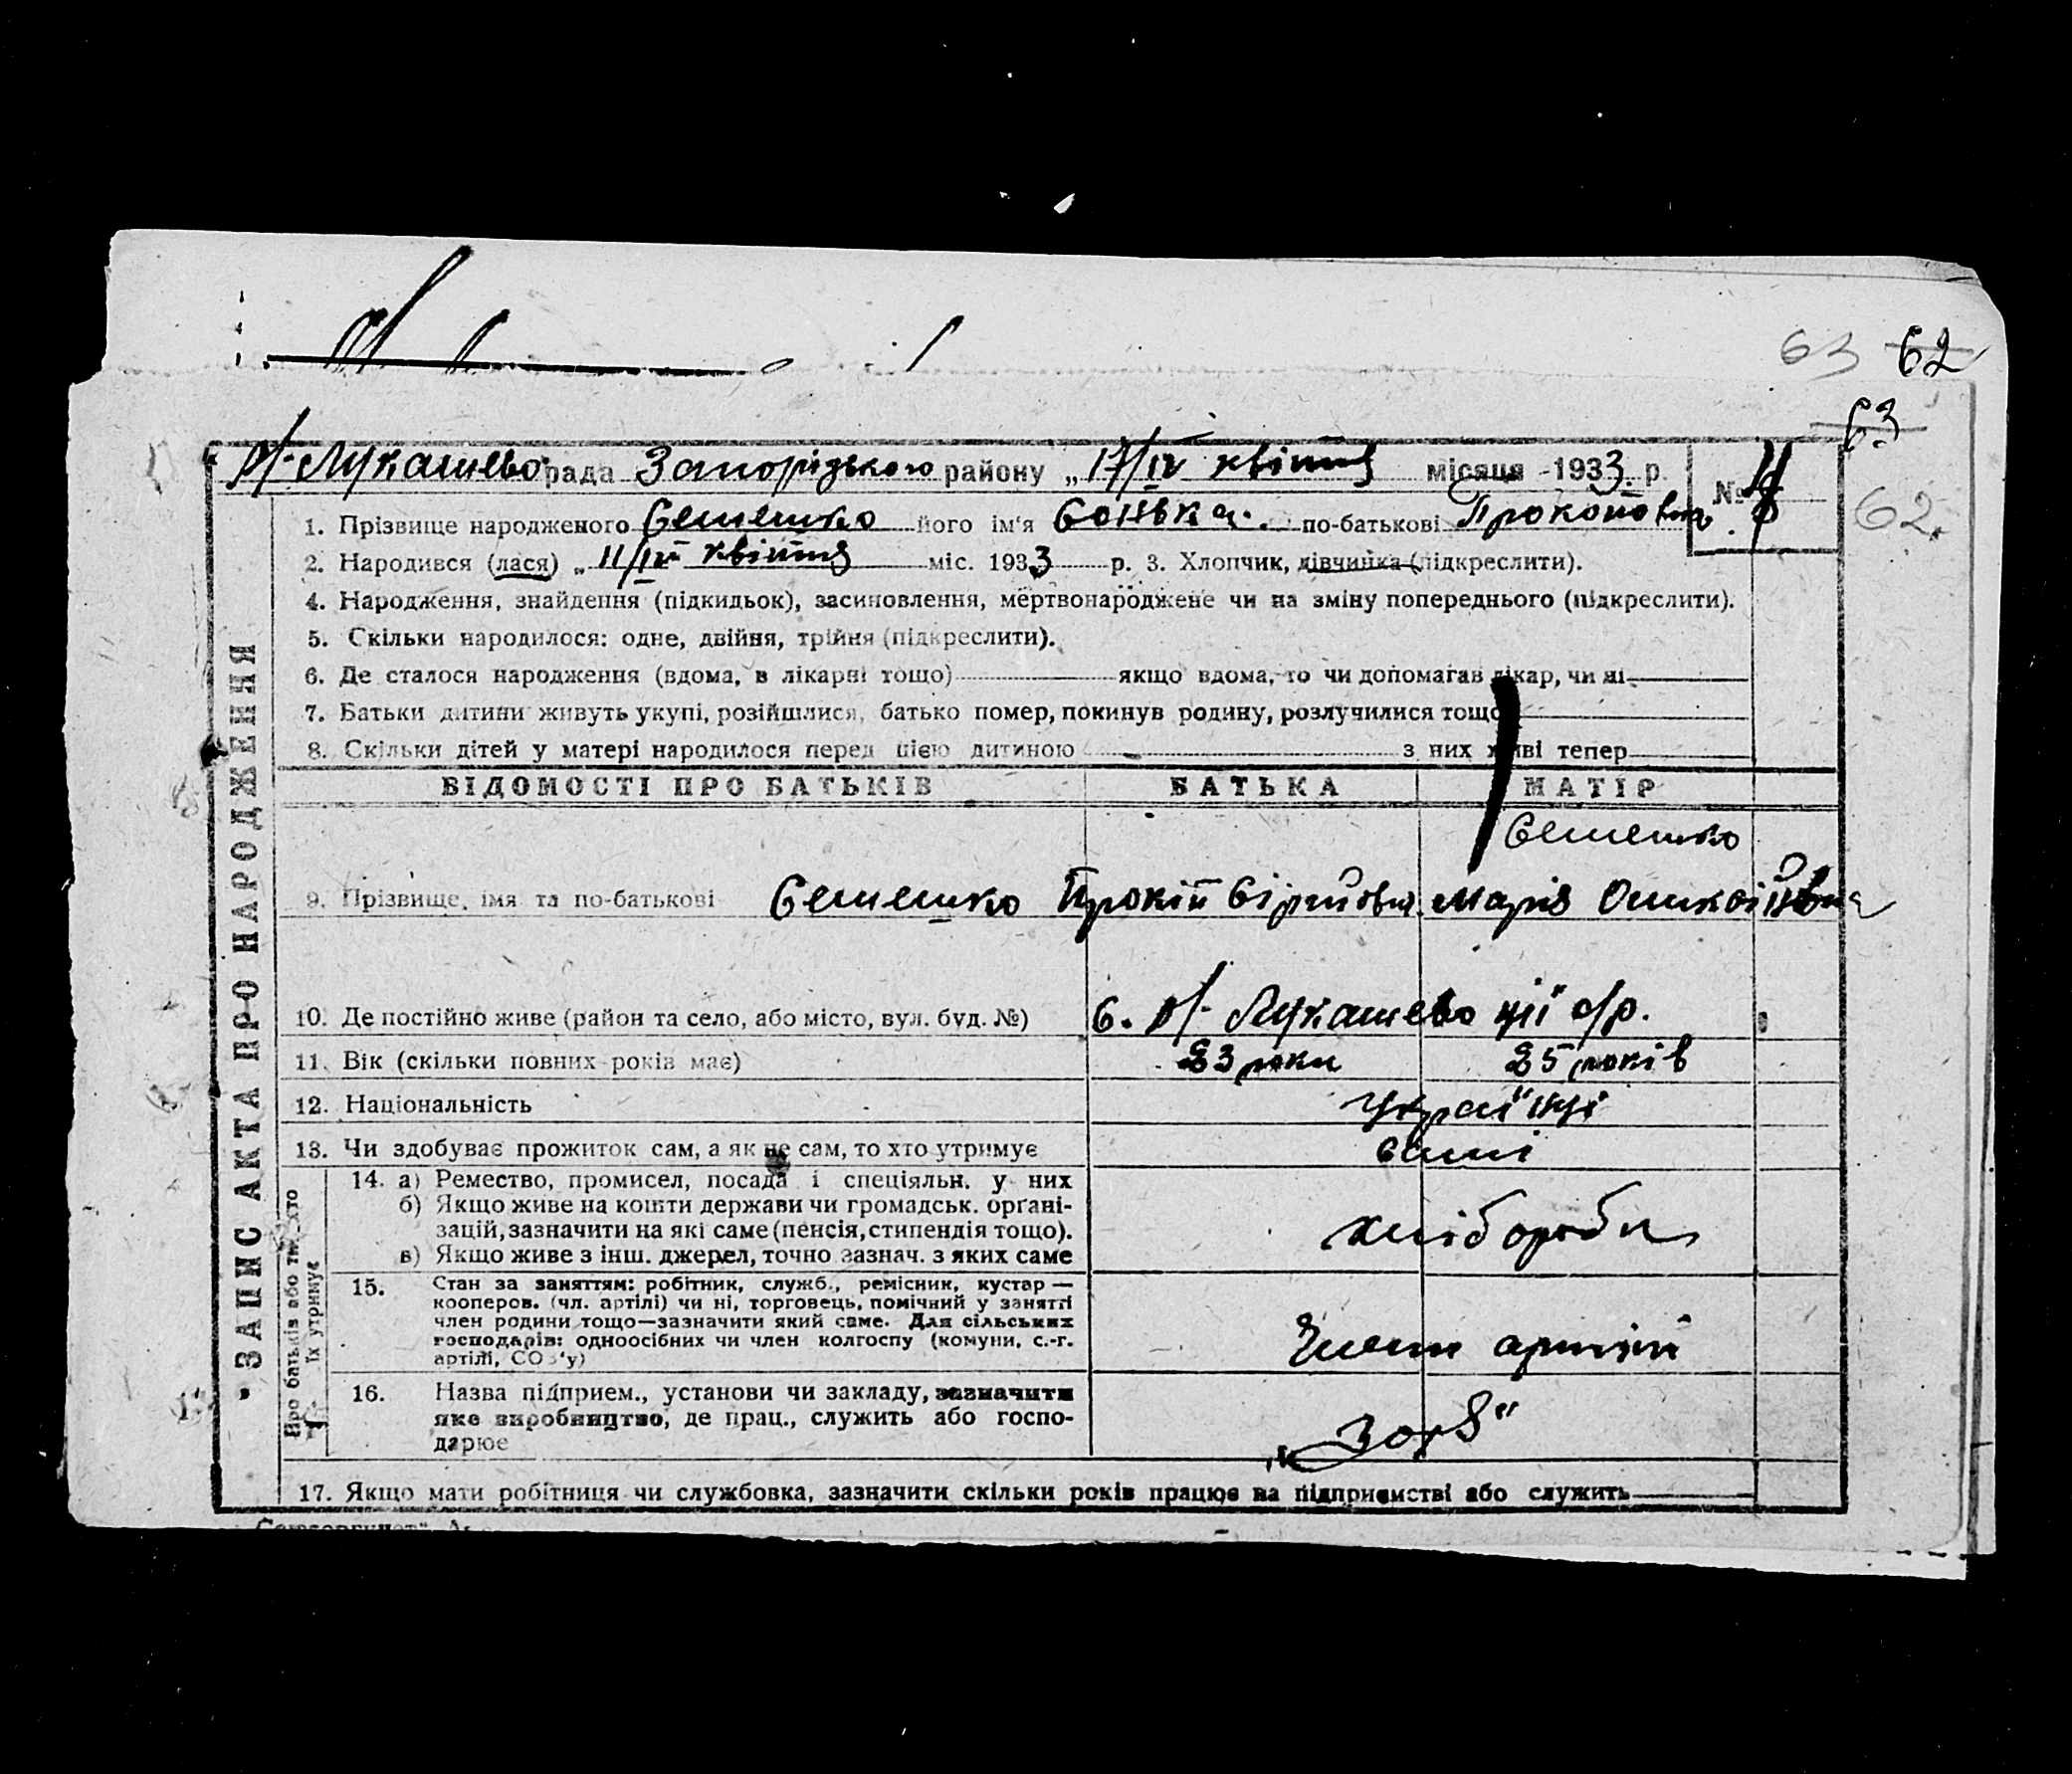 63 62
63
Лукашево рада Запорізького району „17/IV квітня місяця 1933 р. №
62.
1. Прізвище народженого Семешко його ім'я Сонька. по-батькові
2. Народився (лася) „11/IV квітня міс. 1933 р. 3. Хлопчик, дівчинка (підкреслити).
4. Народження, знайдення (підкидьок), засиновлення, мертвонароджене чи на зміну попереднього (підкреслити).
5. Скільки народилося: одне, двійня, трійня (підкреслити).
6. Де сталося народження (вдома, в лікарні тощо) якщо вдома, то чи допомагав лікар, чи ні
7. Батьки дитини живуть укупі, розійшлися, батько помер, покинув родину, розлучилися тощо
8. Скільки дітей у матері народилося перед цією дитиною з них живі тепер
ЗАПИС АКТА ПРО НАРОДЖЕННЯ
ВІДОМОСТІ ПРО БАТЬКІВ БАТЬКА МАТІР
Семешко
9. Прізвище, імя та по-батькові Семешко Прокіп Марія
10. Де постійно живе (район та село, або місто, вул. буд. №) с. Лукашево ції с/р.
11. Вік (скільки повних років має) 23 роки 25 років
12. Національність українці
13. Чи здобуває прожиток сам, а як не сам, то хто утримує самі
14. а) Ремество, промисел, посада і спеціяльн. у них
б) Якщо живе на кошти держави чи громадськ. органі-
зацій, зазначити на які саме (пенсія, стипендія тощо).
в) Якщо живе з інш. джерел, точно зазнач. з яких саме
хлібороби
15. Стан за заняттям: робітник, служб., ремісник, кустар —
кооперов. (чл. артілі) чи ні, торговець, помічний у занятті
член родини тощо—зазначити який саме. Для сільських
господарів: одноосібних чи член колгоспу (комуни, с.-г.
артілі, СОЗ'у)
Члени артілі
16. Назва підприєм., установи чи закладу, зазначити
яке виробництво, де прац., служить або госпо-
дарює
„Зоря"
17. Якщо мати робітниця чи службовка, зазначити скільки років працює на підприємстві або служить